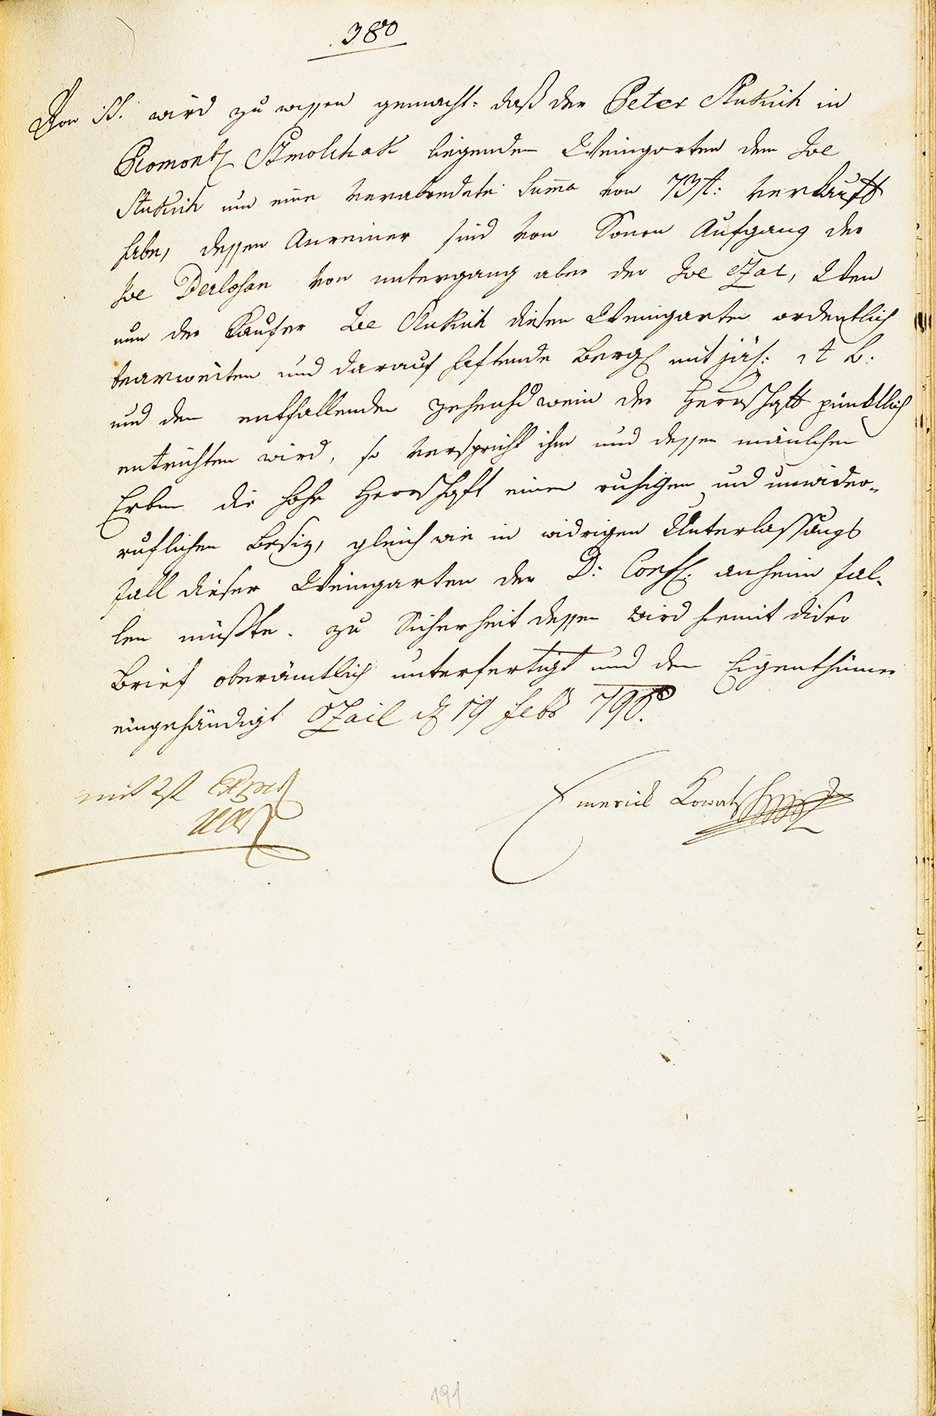 380
Von H. wird zu wissen gemacht: daß der Peter Stukich in
Piomontz Smolchak liegenden Weingarten dem Ive
Stukich um eine verabredete Summa von 73 f: verkauft
habe, dessen Anreiner sind von Sonen Aufgang der
Ive Derlosan von untergang aber der Ive Czar, Wen
nun der Kaufer Ive Stukich diesen Weingarten ordentlich
bearweiten und darauf haftende Bergh mit jäh:
und den entfallenden zehendwein der Herrschaft pünktlich
entrichten wird, so verspricht ihm und dessen mänlichen
Erben die hohe Herrschaft einen ruhigen und unwider-
ruflichen Besiz, gleich wie in widrigen Unterlassungs
fall dieser Weingarten der D: anheim fal-
len müste. zu Sicherheit dessen wird hemit diser
Brief oberämtlich unterfertigt und den Eigenthümer
eingehändigt 19 feb 790.
mit
Emerich Kovats
191